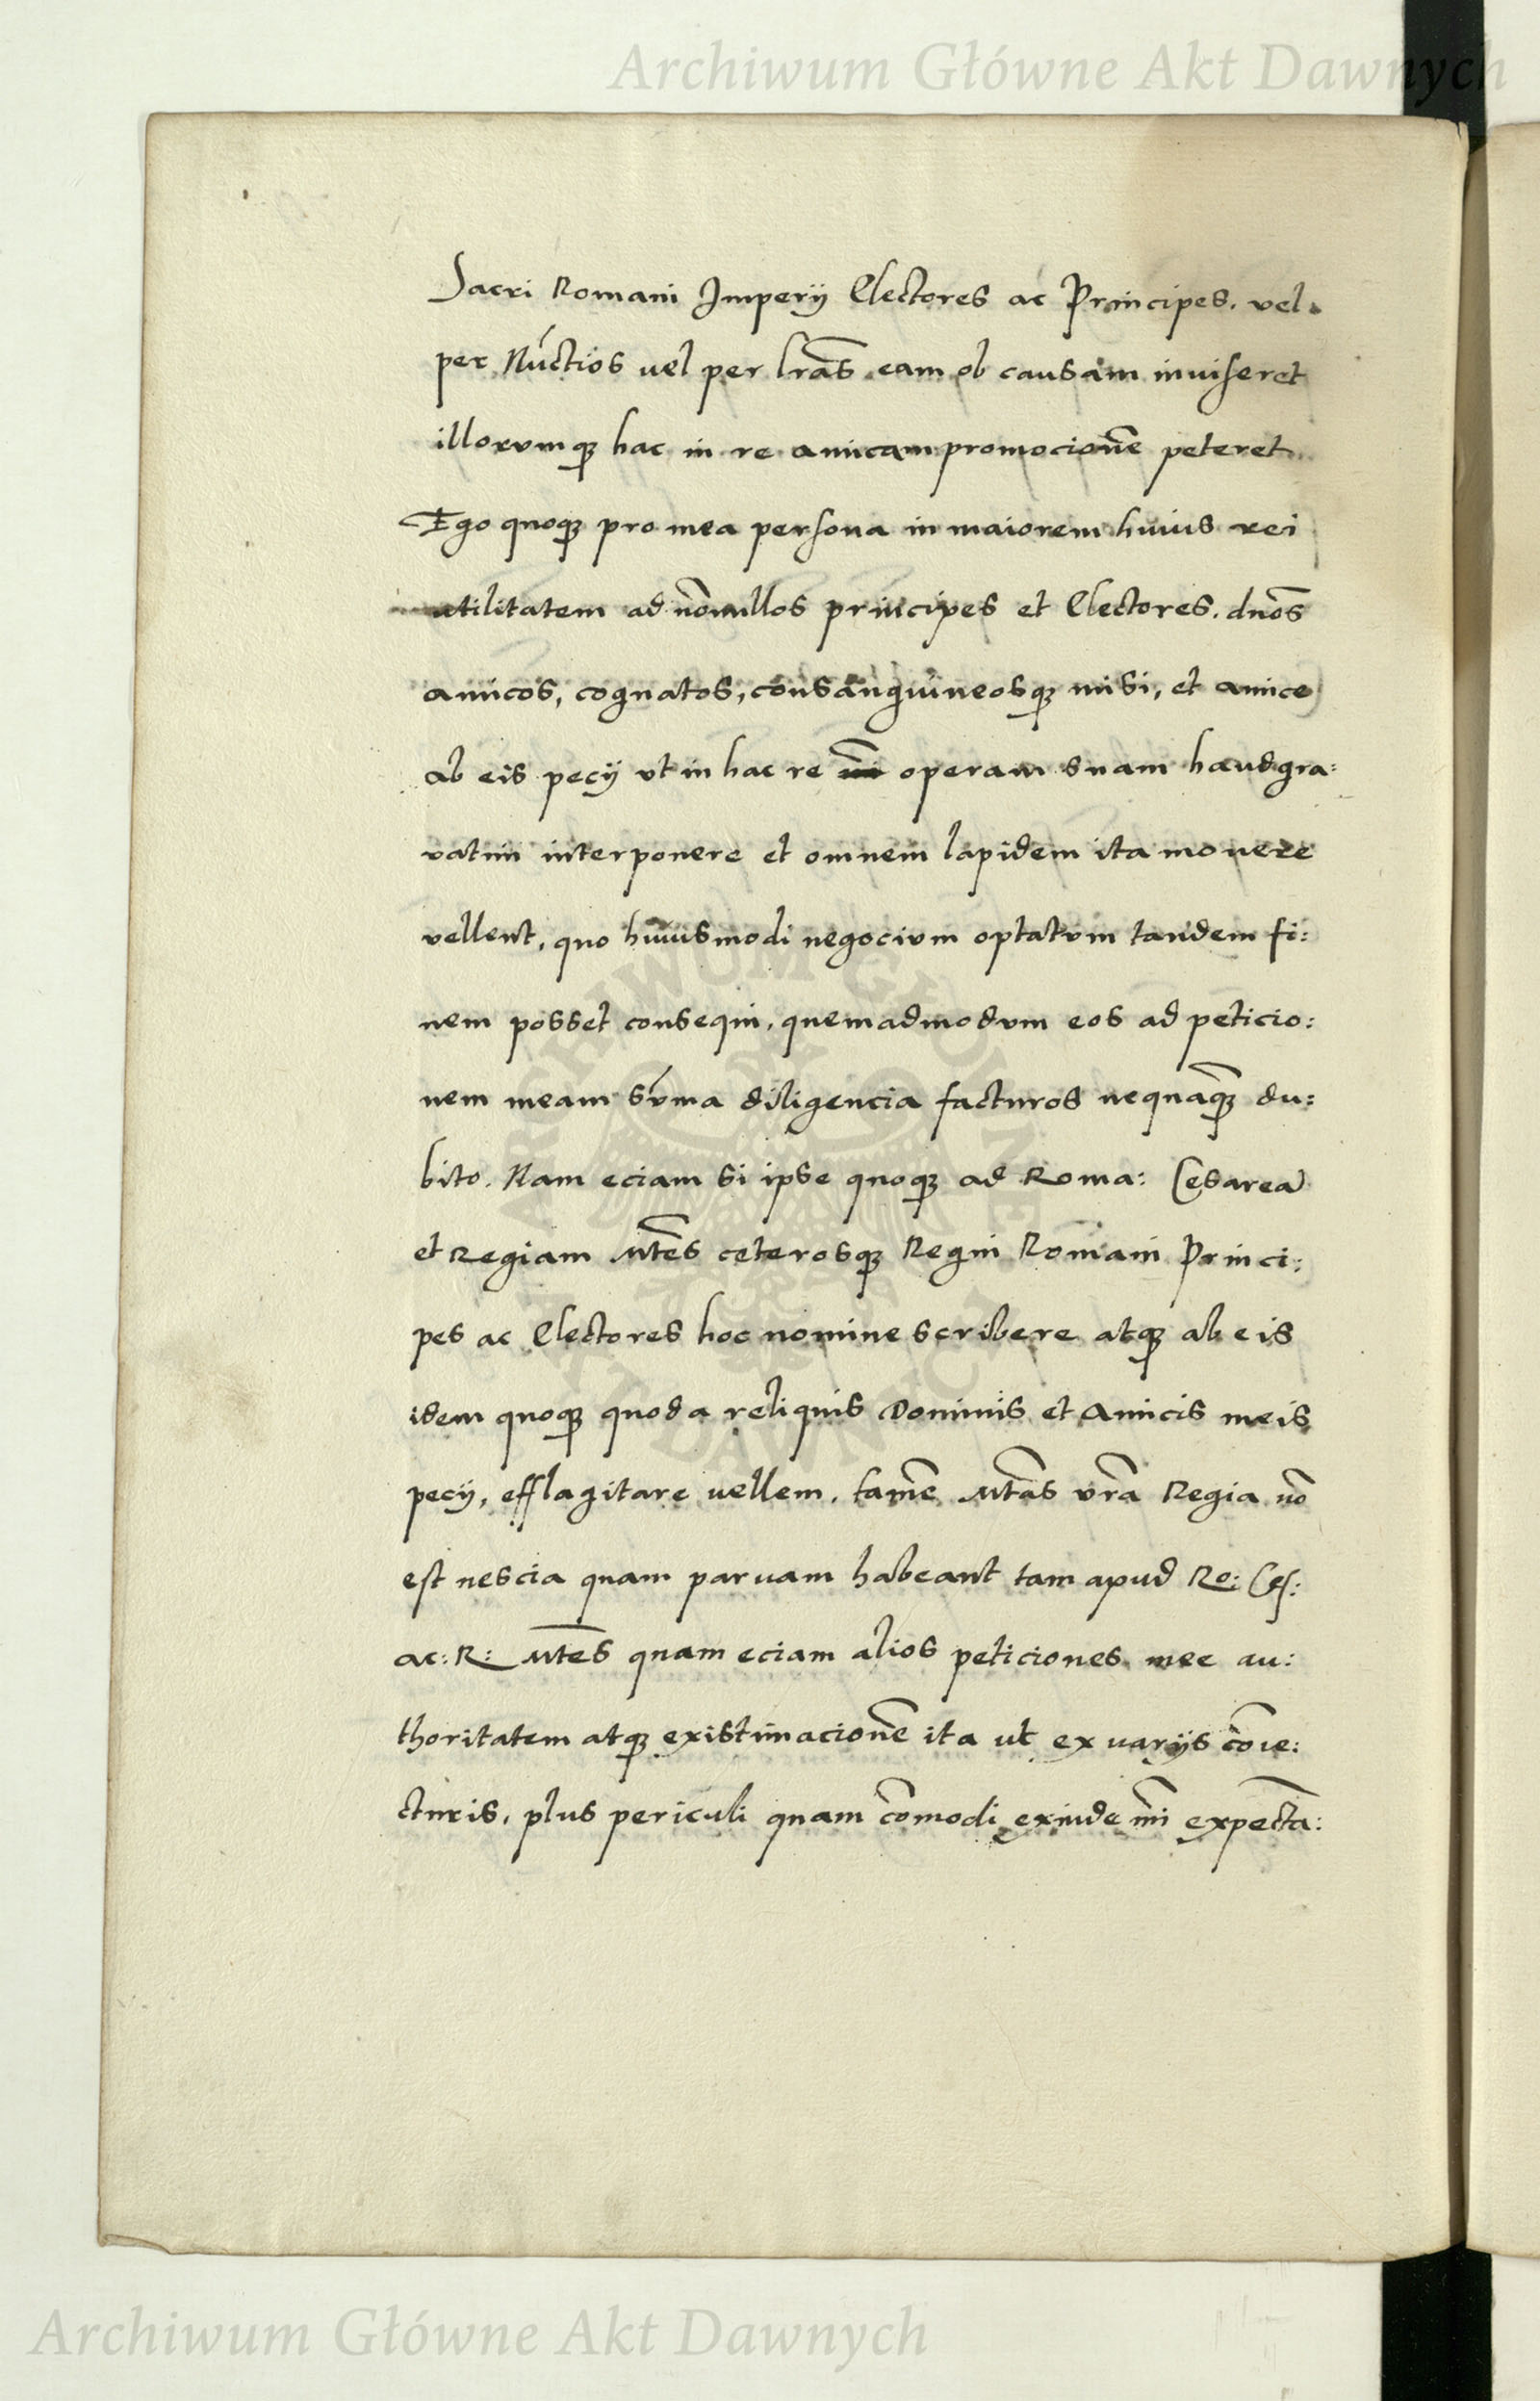 Archiwum Główne Akt Dawnych
Sacri Romani Imperij Electores ac Principes. vel
per Nūctios vel per lr̃as eam ob causam inuiseret
illorvmqꝫ hac in re amicam promocionẽ peteret
Ego quoqꝫ pro mea persona in maiorem huius rei
utilitatem ad nõnullos principes et Electores. dnõs
amicos, cognatos, consanguineosqꝫ misi, et amice
ab eis pecij vt in hac re operam suam haud gra:
vatim interponere et omnem lapidem ita mouere
vellent, quo huiusmodi negocivm optatvm tandem fi:
nem posset consequi, quemadmodvm eos ad peticio:
nem meam sv̄ma diligencia facturos nequaqꝫ du:
bito. Nam eciam si ipse quoqꝫ ad Roma: Cesarea
et Regiam Mtẽs ceterosqꝫ Regni Romani Princi:
pes ac Electores hoc nomine scribere atqꝫ ab eis
idem quoqꝫ quod a reliquis Dominis et Amicis meis
pecij, efflagitare uellem. tamẽ Mtãs vr̃a Regia nõ
est nescia quam paruam habeant tam apud Ro: Ces:
ac: R: Mtẽs quam eciam alios peticiones mee au:
thoritatem atqꝫ existimacionẽ ita ut ex varijs cõie:
cturis, plus periculi quam cõmodi exinde mi̅ expecta̅:
ARCHIWUM GŁÓWNE
AKT DAWNYCH
Archiwum Główne Akt Dawnych